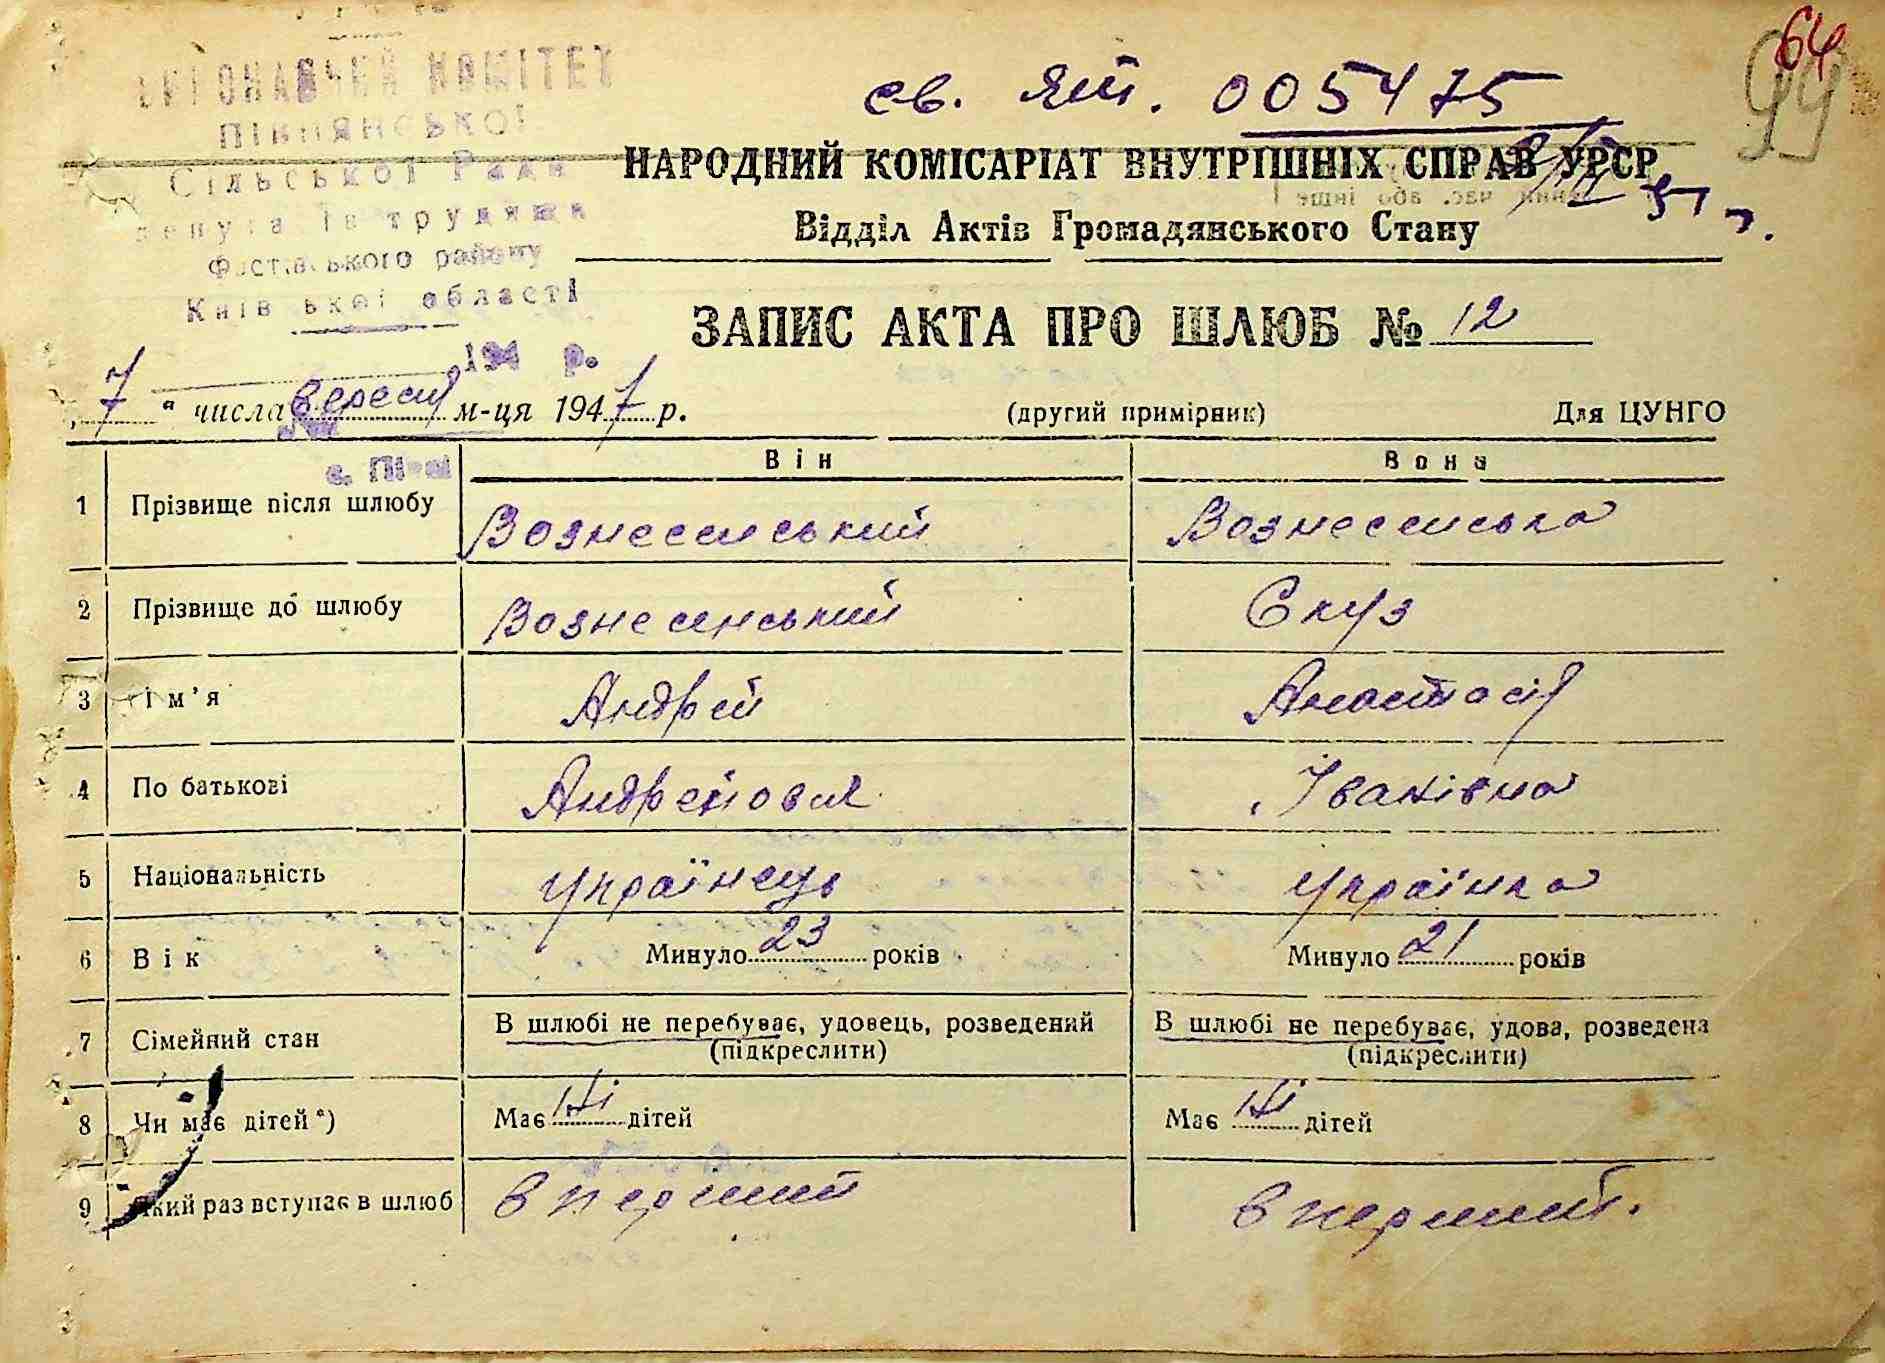 64
99
ВИКОНАВЧИЙ КОМІТЕТ
ПІВНЯНСЬКОЇ
Сільської Ради
депутатів трудящих
Фастівського району
Київської області
194 р.
с. Півні
св. ЯШ. 005475
НАРОДНИЙ КОМІСАРІАТ ВНУТРІШНІХ СПРАВ УРСР
Відділ Актів Громадянського Стану
ЗАПИС АКТА ПРО ШЛЮБ № 12
„ 7 " числа вересня м-ця 1947 р. (другий примірник) Для ЦУНГО
Він Вона
1 Прізвище після шлюбу Вознесенський Вознесенська
2 Прізвище до шлюбу Вознесенський Скуз
3 Ім'я Андрей Анастасія
4 По батькові Андрейович Іванівна
5 Національність Українець Українка
6 Вік Минуло 23 років Минуло 21 років
7 Сімейний стан В шлюбі не перебуває, удовець, розведений (підкреслити) В шлюбі не перебуває, удова, розведена (підкреслити)
8 Чи має дітей*) Має ні дітей Має ні дітей
9 Який раз вступає в шлюб в перший в перший.